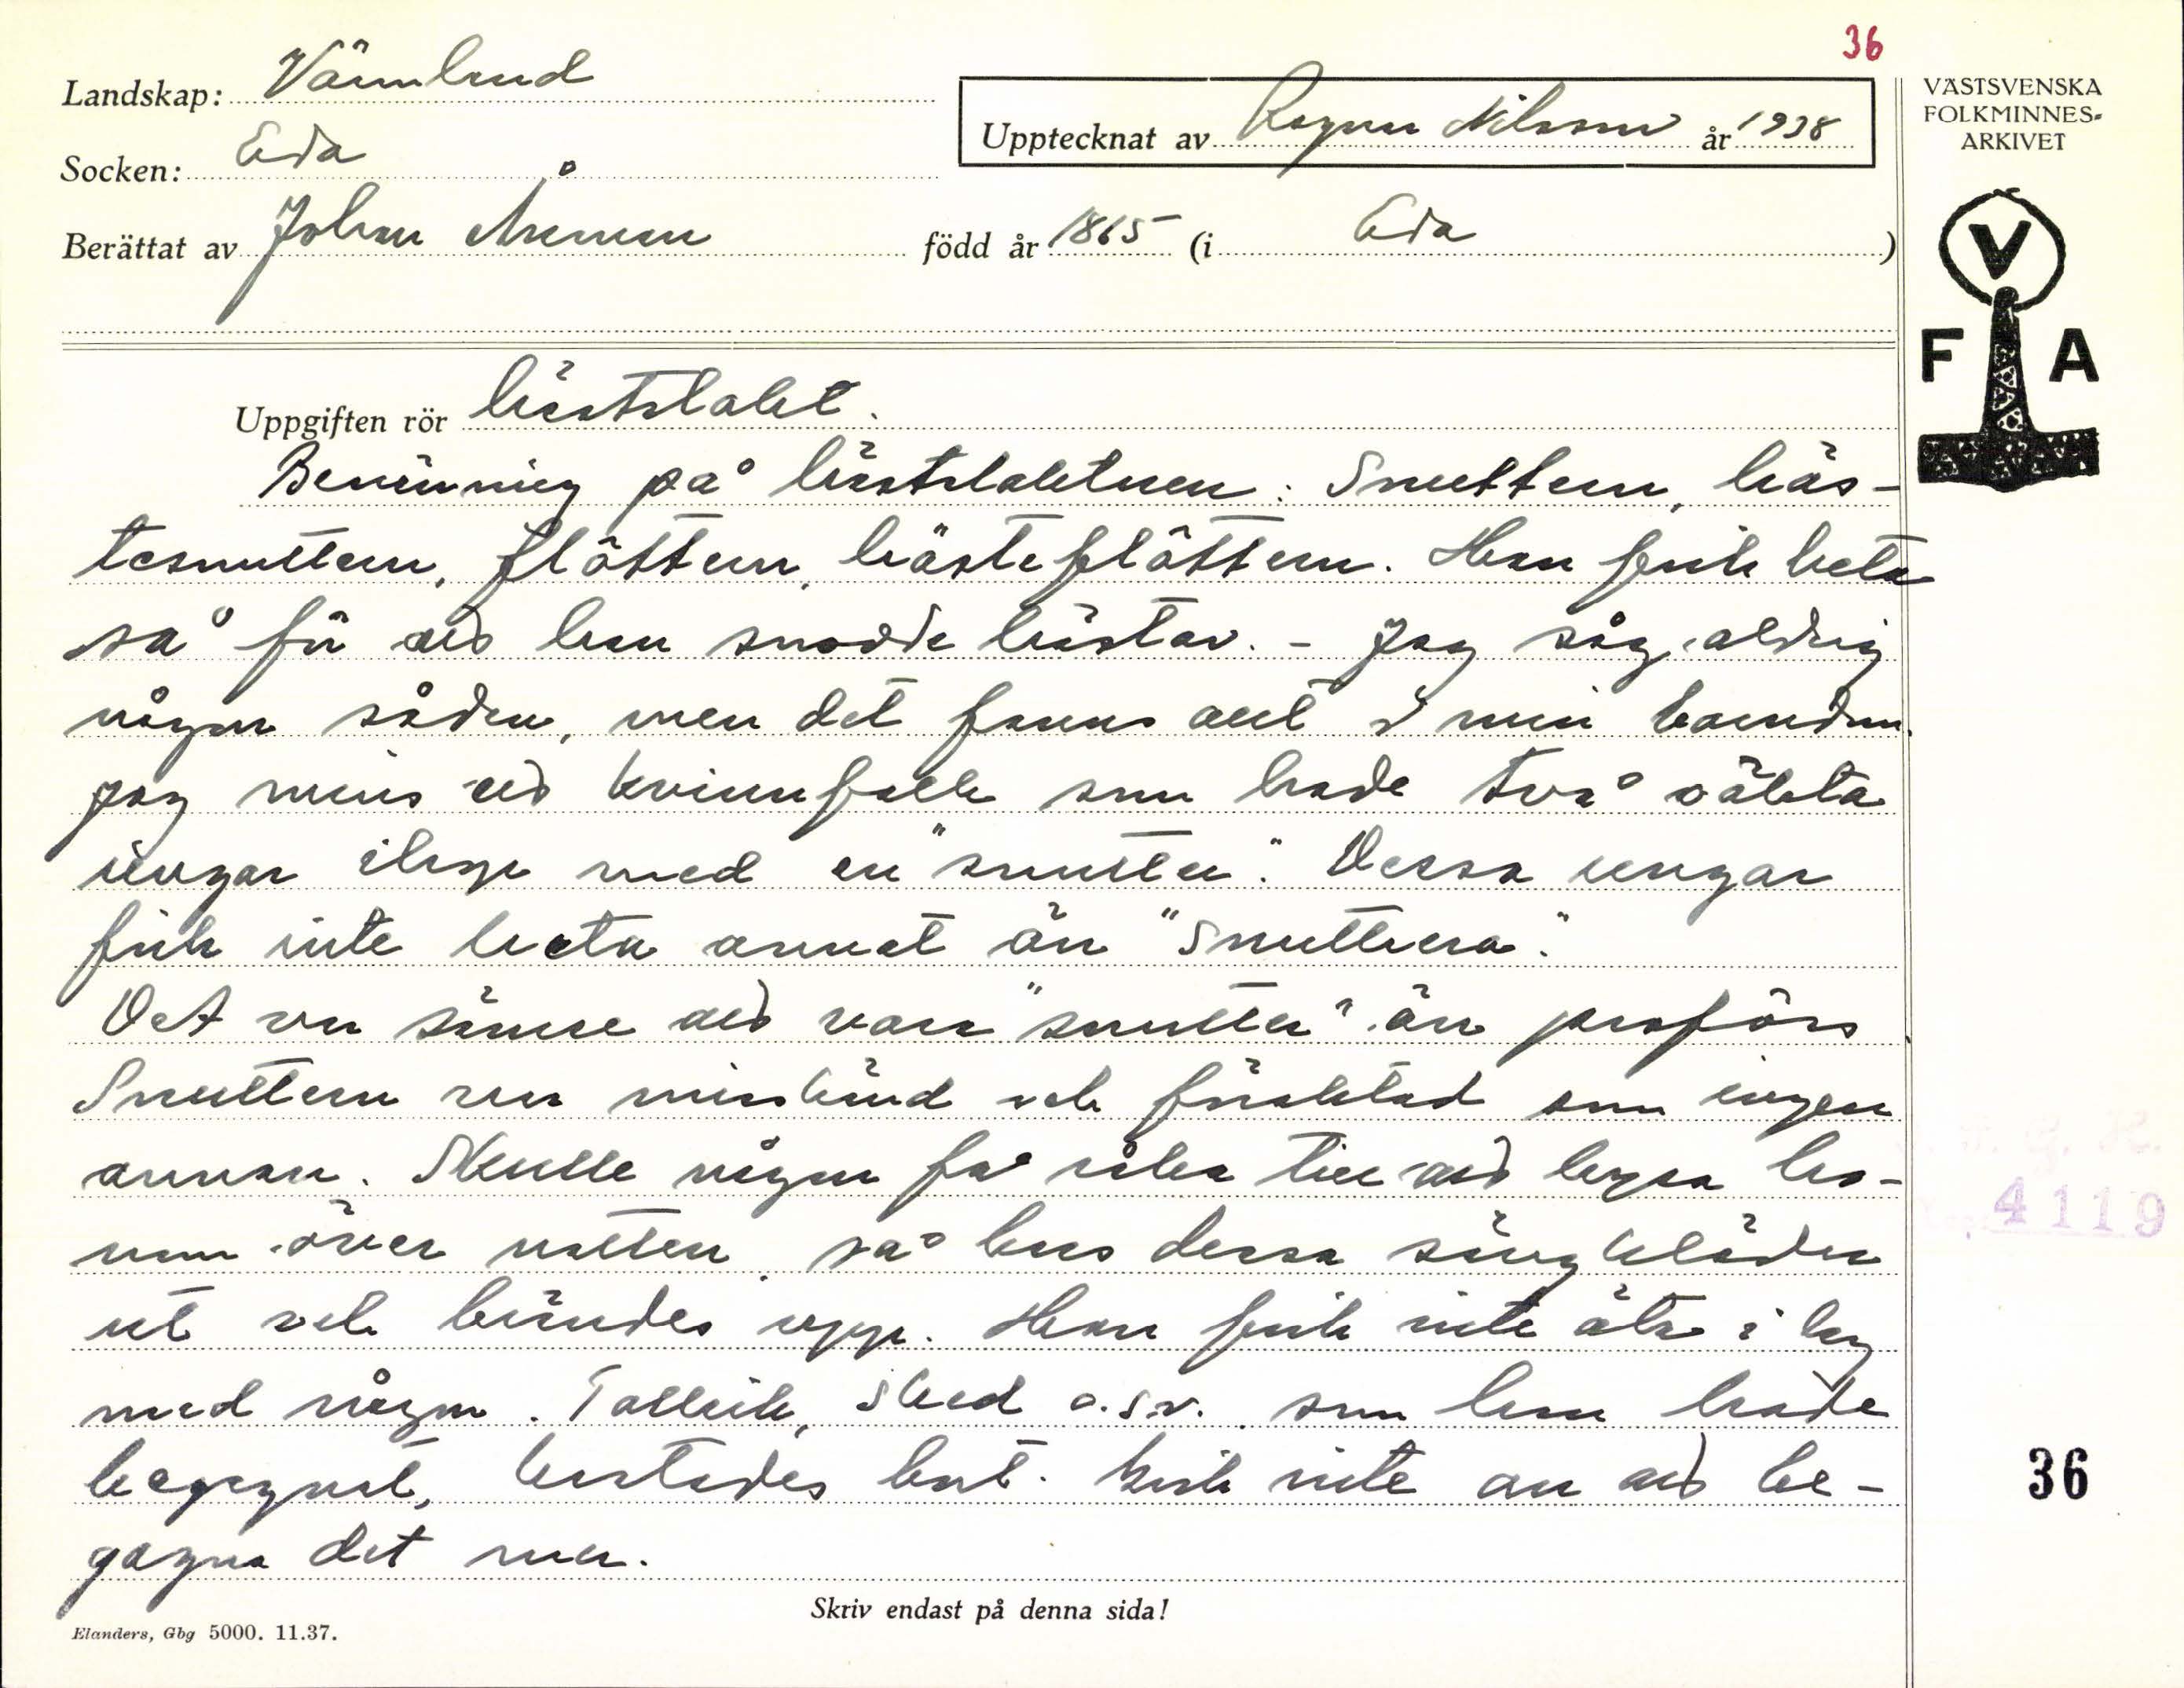 36
Landskap: Värmland
Socken: Eda
Upptecknat av Ragnar Nilsson år 1938
Berättat av Johan Åmman född år 1865 (i Eda)
VÄSTSVENSKA
FOLKMINNES-
ARKIVET
V
F A
Uppgiften rör hästslakt.
Benämning på hästslaktaren: Snuttern, häs-
tesnuttern, flåttern, hästeflåttern. Han fick heta
så för att han snodde hästar. – Jag såg aldrig
någon sådan, men det fanns allt i min barndom.
Jag minns ett kvinnfolk som hade två oäkta
ungar ihop med en "snutter". Dessa ungar
fick inte heta annat än "Snuttrera".
Det var sämre att vara "snutter" än profoss.
Snuttern var misskänd och föraktad som ingen
annan. Skulle någon få råka till att logera ho-
nom över natten, så bars dessa sängkläder
ut och brändes upp. Han fick inte äta i lag
med någon. Tallrik, sked o.s.v. som han hade
begagnat, kastades bort. Gick inte an att be-
gagna det mer.
4119
36
Skriv endast på denna sida!
Elanders, Gbg 5000. 11.37.